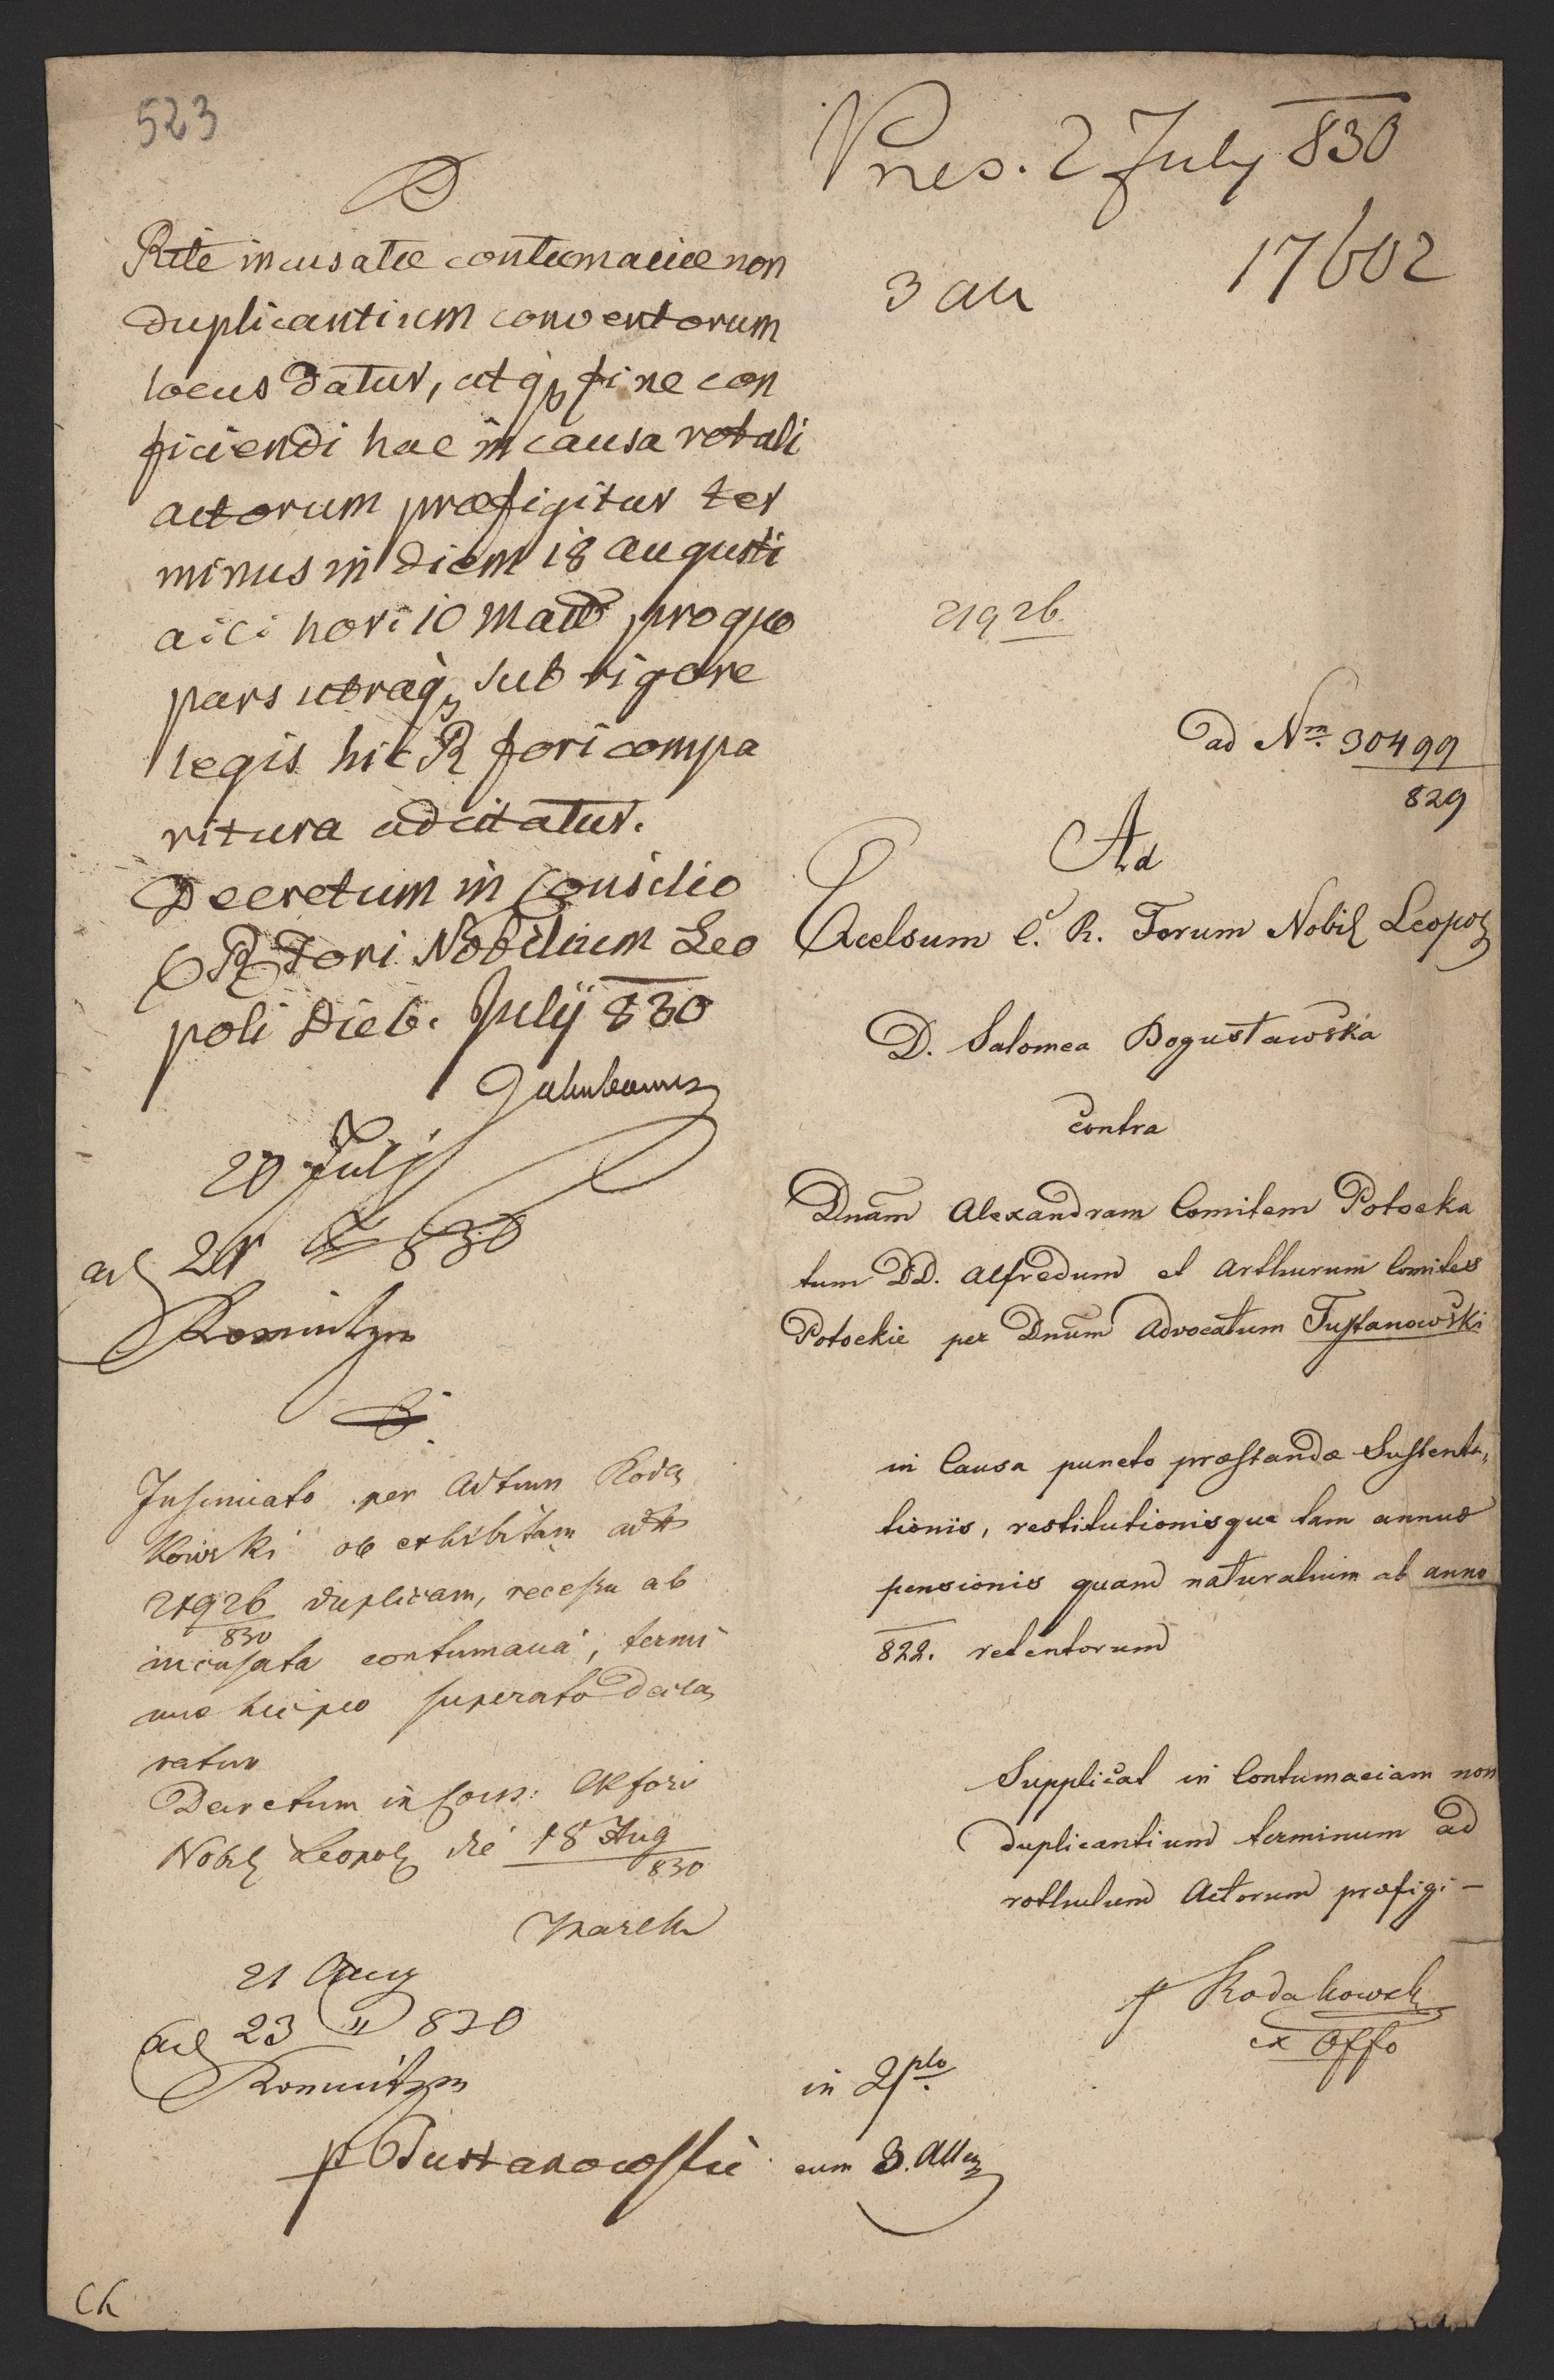 523
D
Rite incusatæ contumaciæ non
duplicantium conventorum
locus datur, atq; fine con
ficiendi hac in causa rotuli
actorum præfigitur ter
minus in diem 18 augusti
aici hori 10 mat pro quo
pars utraq; sub rigore
legis hic R fori compa
ritura adcitatur.
Decretum in Consilio
CR Fori Nobilium Leo
poli Die 6. July 830
20 Julj
ad 21 830
Insinuato per Adtum Roda
kowski ob exhibitam ad N
21926 duplicam, recessu ab
830
incusata contumacia, termi
nus hic pro superato decla
ratur
Decretum in Cons: CR fori
Nobil Leopol die 18 Aug
830
21 Aug
ad 23 " 830
p Tustanowskie
Ch
Pres. 2 July 830
17602
3 all
21926
ad Nm. 30499
829
Ad
Excelsum C. R. Forum Nobil Leopol
D. Salomea Bogusławska
contra
Dnam Alexandram Comitem Potocka
tum DD. Alfredum et Arthurum Comites
Potockie per Dnum Advocatum Tustanowski
in Causa puncto præstandæ Sustenta,
tionis, restitutionisque tam annuæ
pensionis quam naturalium ab anno
822. retentorum
Supplicat in Contumaciam non
duplicantium terminum ad
rothulum Actorum præfigi —
p Rodakowski
ex Offo
in 2plo.
cum 3. All